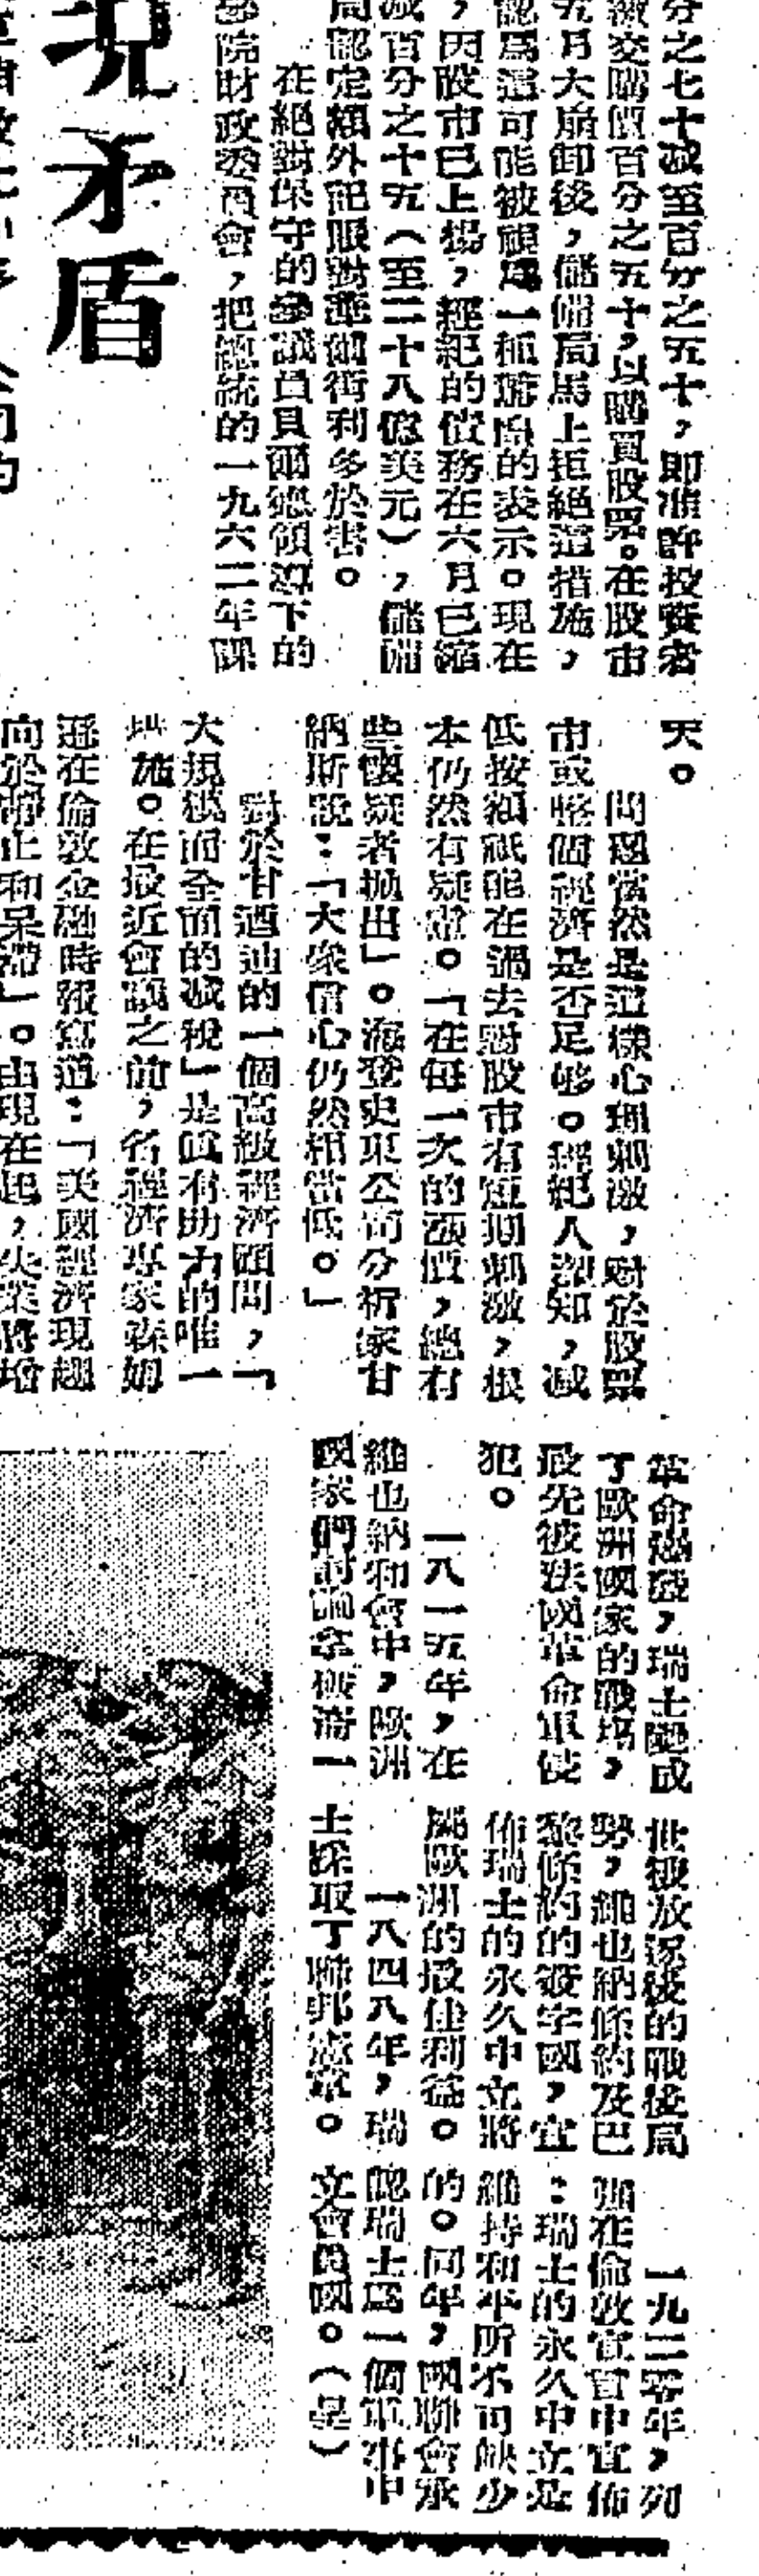 分之七十減至百分之五十，即准許投資者
繳交購價百分之五十，以購買股票。在股市
五月大崩卸後，儲備局馬上拒絕這措施，
認爲這可能被視爲一種 的表示。現在
，因股市已上揚，經紀的債務在六月已縮
減百分之十五（至二十八億美元），儲備
局認定額外記賬對 衝利多於害。
在絕對保守的參議員貝爾德領導下的
院財政委員會，把總統的一九六二年課
現矛盾
天。
問題當然是這樣心理刺激，對於股票
市或整個經濟是否足够。經紀人都知，減
低按額祇能在過去對股市有短期刺激，根
本仍然有疑慮。「在每一次的漲價，總有
些懷疑者拋出」。海登史東公司分析家甘
納斯說：「大衆信心仍然相當低。」
對於甘迺迪的一個高級經濟顧問，「
大規模而全面的減稅」是眞有助力的唯一
措施。在最近會議之前，名經濟專家森姆
遜在倫敦金融時報寫道：「美國經濟現趨
向於靜止和呆滯」。由現在起，失業將增
革命 ，瑞士變成
了歐洲國家的戰塲，
最先被法國革命軍侵
犯。
一八一五年，在
維也納和會中，歐洲
國家們討論拿破崙一
世被放逐後的戰後局
勢，維也納條約及巴
黎條約的簽字國，宣
佈瑞士的永久中立將
屬歐洲的最佳利益。
一八四八年，瑞
士採取了聯邦憲章。
一九二零年，列
強在倫敦宣言中宣佈
：瑞士的永久中立是
維持和平所不可缺少
的。同年，國聯會承
認瑞士爲一個軍事中
立會員國。（ ）